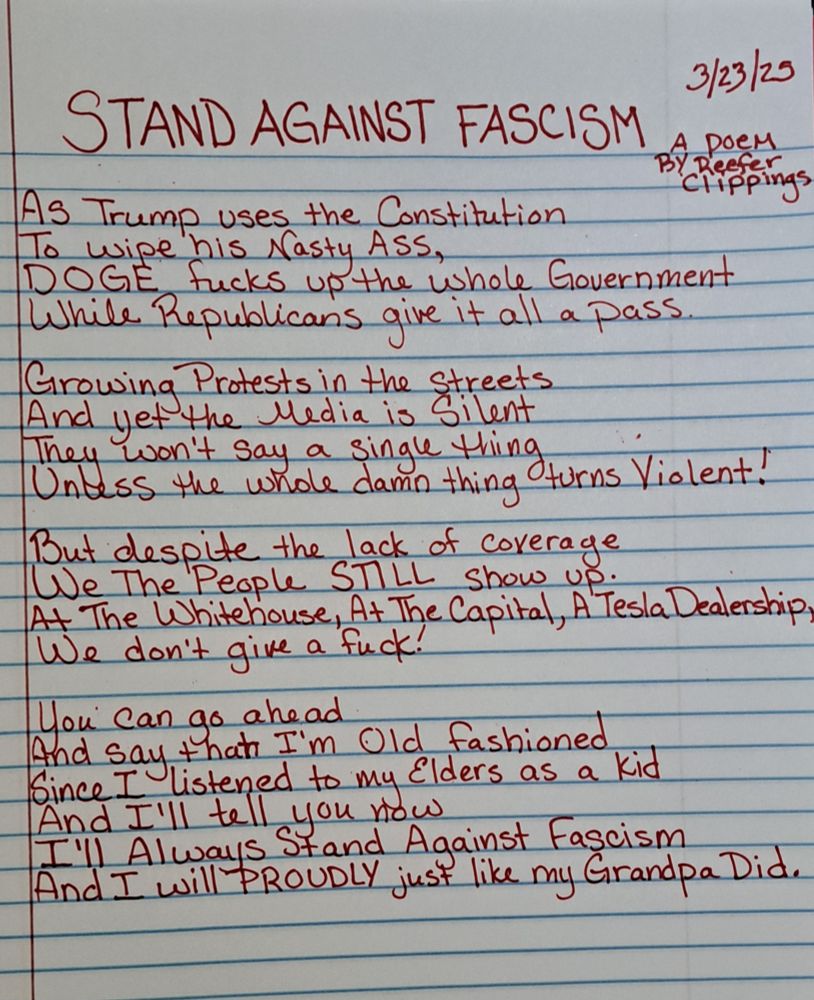 3/23/25
STAND AGAINST FASCISM
A POEM
BY Reefer
Clippings
As Trump uses the Constitution
To wipe his Nasty ASS,
DOGE fucks up the whole Government
While Republicans give it all a pass.
Growing Protests in the streets
And yet the Media is Silent
They won't say a single thing
Unless the whole damn thing turns Violent!
But despite the lack of coverage
We The People STILL show up.
At The Whitehouse, At The Capital, A Tesla Dealership,
We don't give a fuck!
You can go ahead
And say that I'm Old fashioned
Since I listened to my Elders as a kid
And I'll tell you now
I'll Always Stand Against Fascism
And I will PROUDLY just like my Grandpa Did.